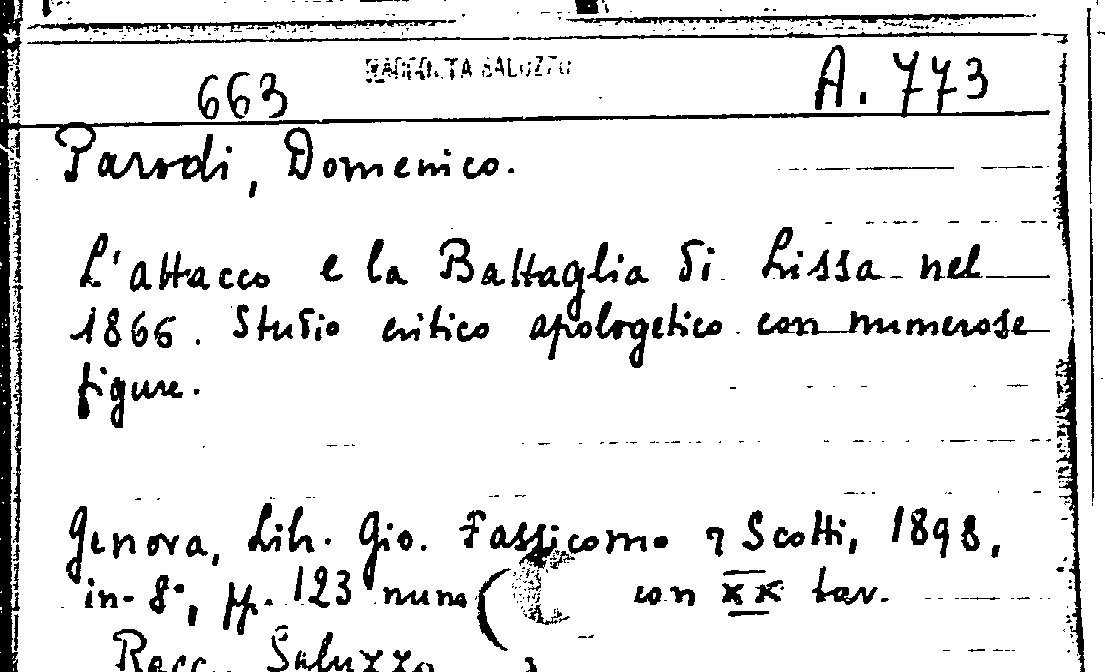 RACCOLTA SALUZZO
663 A. 773
Parodi, Domenico.
L'attacco e la Battaglia di Lissa nel
1866. Studio critico apologetico con numerose
figure.
Genova, Lib. Gio. Fassicomo & Scotti, 1898,
in-8°, pp. 123 num con XX tav.
Racc. Saluzzo